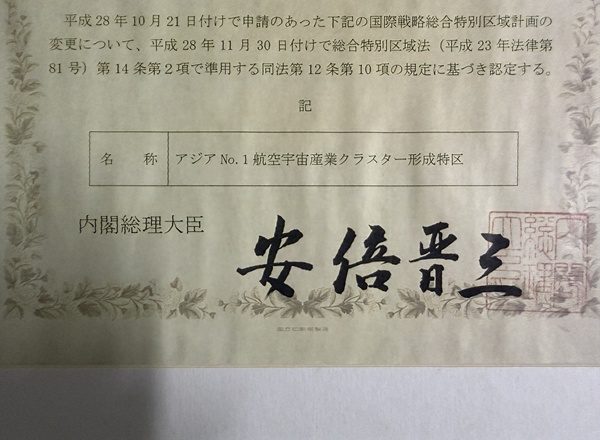 平成 28 年 10 月 21 日付けで申請のあった下記の国際戦略総合特別区域計画の
変更について、平成 28 年 11 月 30 日付けで総合特別区域法（平成 23 年法律第
81 号）第 14 条第２項で準用する同法第 12 条第 10 項の規定に基づき認定する。
記
名　称　アジア No.１航空宇宙産業クラスター形成特区
内閣総理大臣　安倍晋三